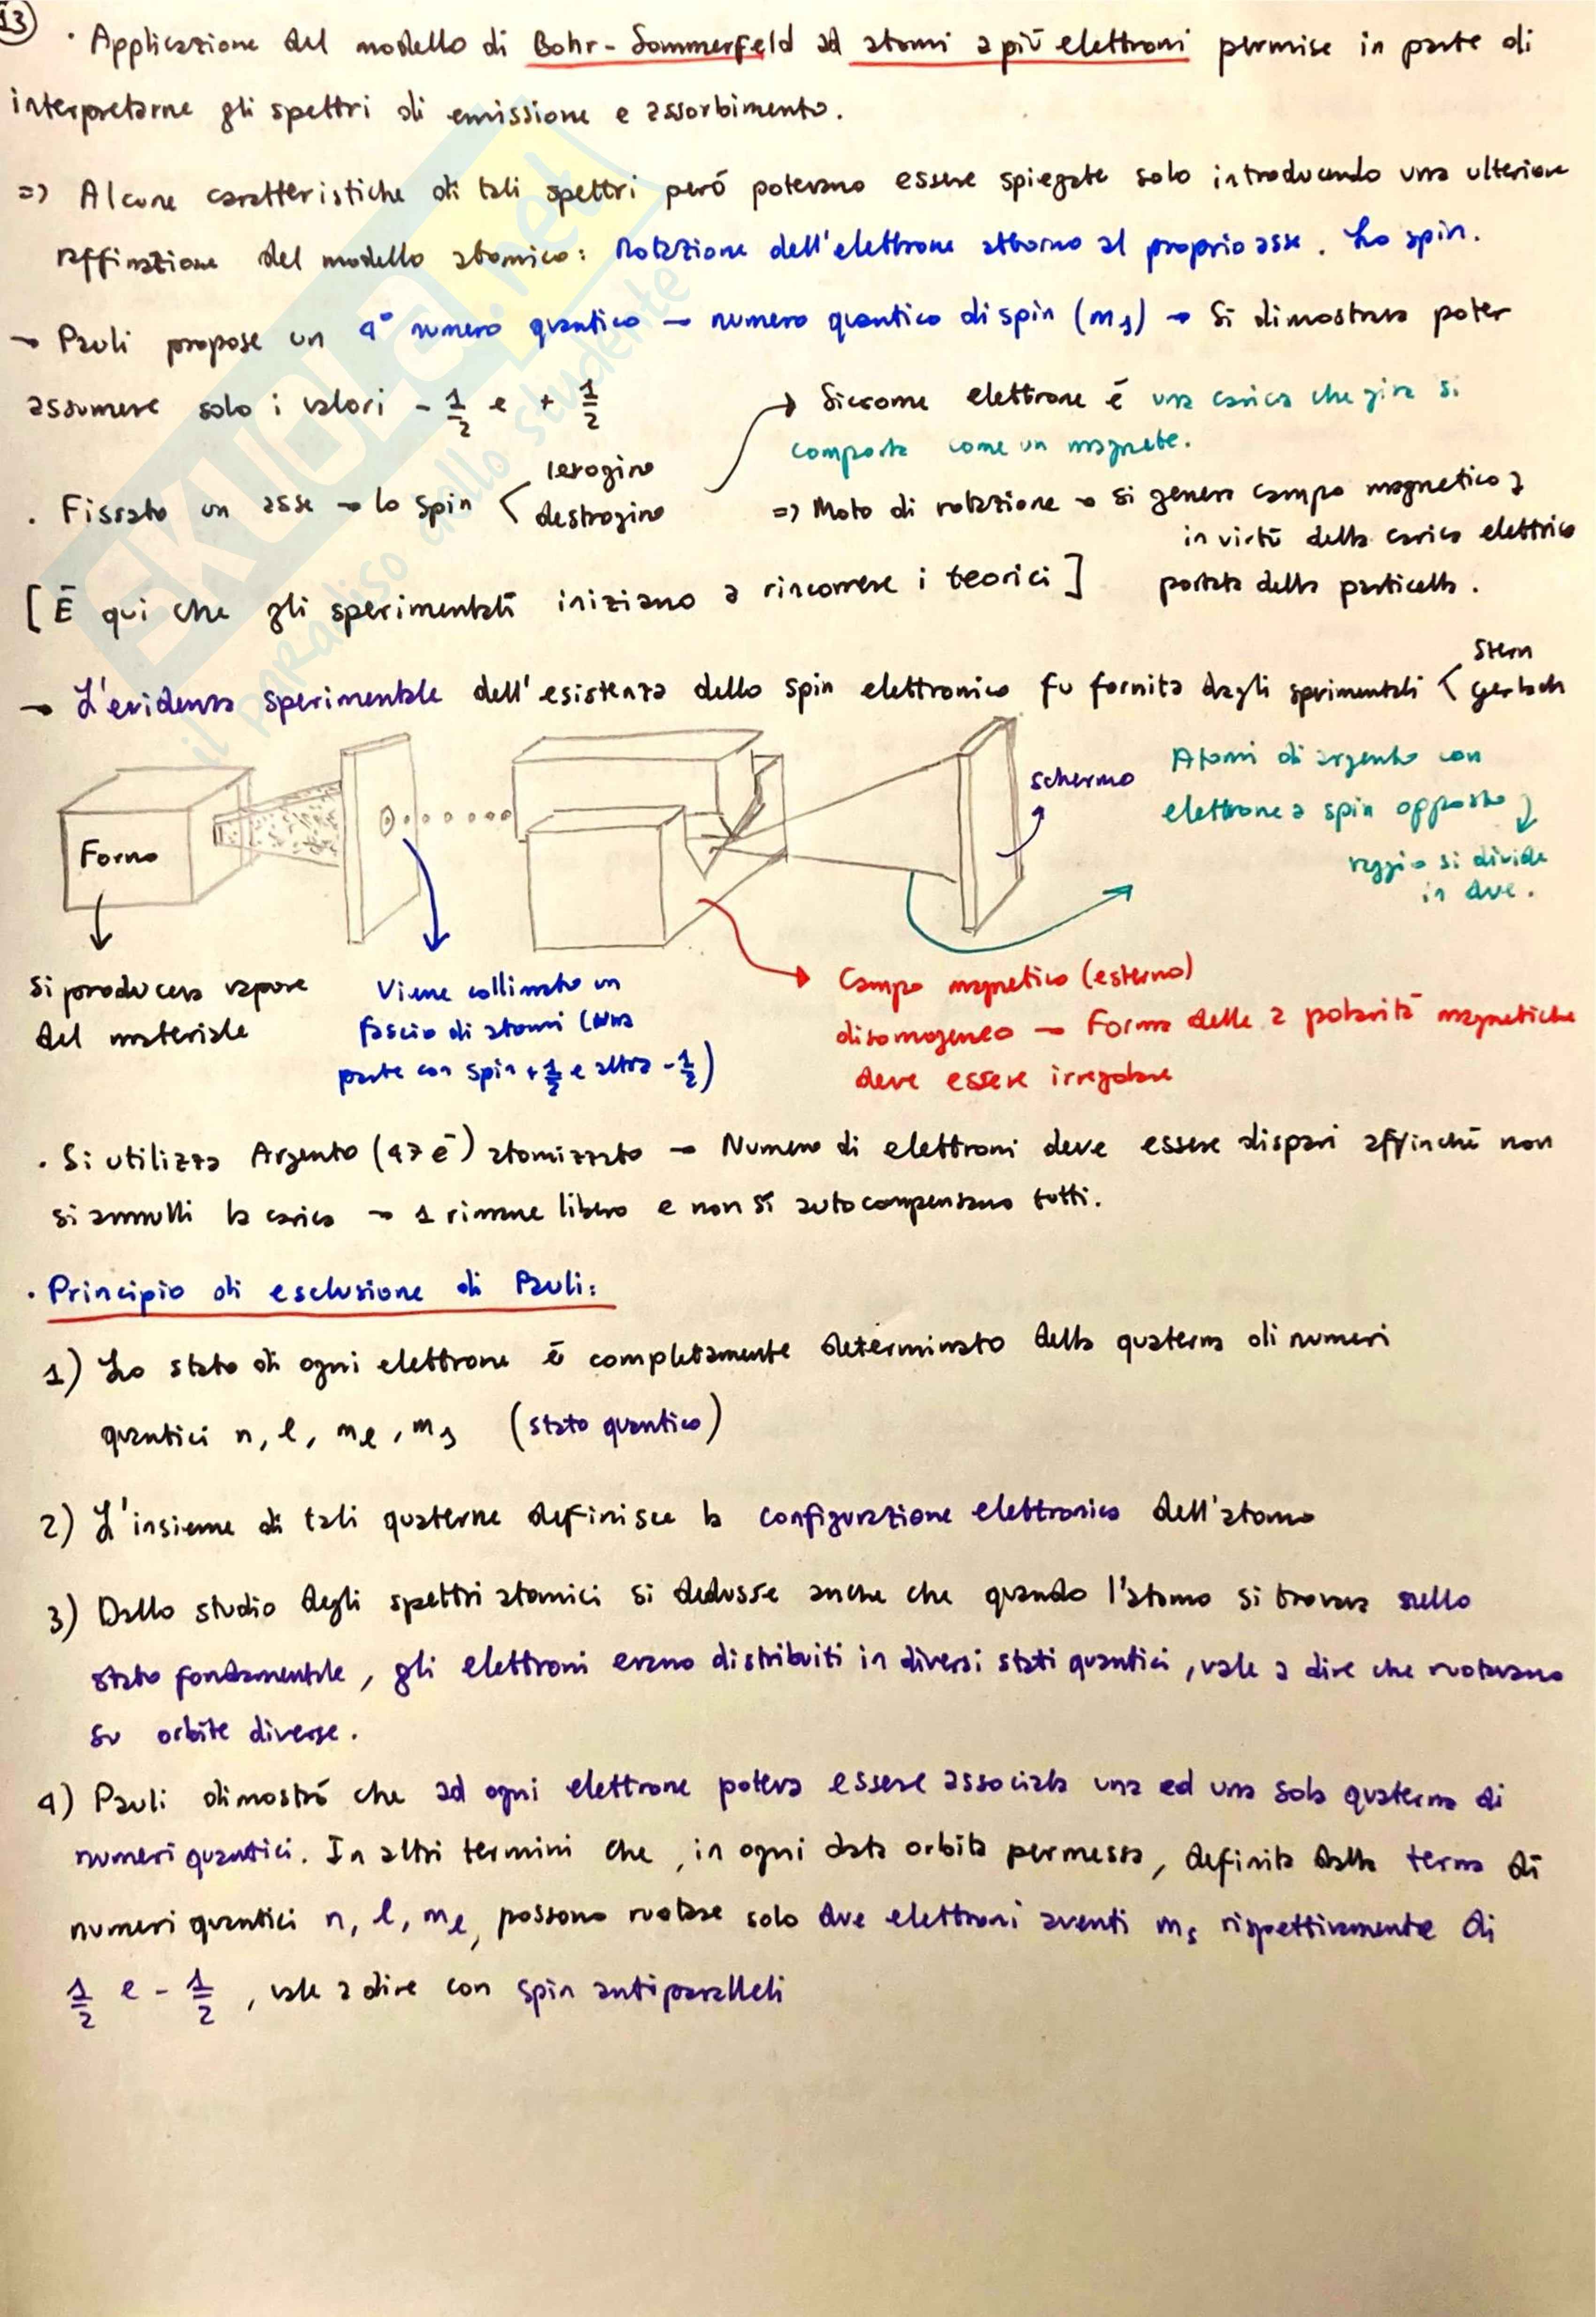 13
· Applicazione del modello di Bohr-Sommerfeld ad atomi a più elettroni permise in parte di
interpretarne gli spettri di emissione e assorbimento.
=> Alcune caratteristiche di tali spettri però potevano essere spiegate solo introducendo una ulteriore
raffinazione del modello atomico: Rotazione dell'elettrone attorno al proprio asse. Lo spin.
→ Pauli propose un 4° numero quantico → numero quantico di spin (ms) → Si dimostrava poter
assumere solo i valori - 1/2 e + 1/2
→ Siccome elettrone è una carica che gira si
comporta come un magnete.
· Fissato un asse → lo spin < levogiro
destrogiro
=> Moto di rotazione → si genera campo magnetico
in virtù della carica elettrica
portata della particella.
[È qui che gli sperimentali iniziano a rincorrere i teorici]
→ L'evidenza sperimentale dell'esistenza dello spin elettronico fu fornita dagli sperimentali < Stern
Gerlach
Forno
schermo
Atomi di argento con
elettrone a spin opposto
raggio si divide
in due.
Si produceva vapore
del materiale
Viene collimato un
fascio di atomi (una
parte con spin + 1/2 e altra - 1/2)
Campo magnetico (esterno)
disomogeneo → Forma delle 2 polarità magnetiche
deve essere irregolare
· Si utilizza Argento (47 e⁻) atomizzato → Numero di elettroni deve essere dispari affinché non
si annulli la carica → 1 rimane libero e non si autocompensano tutti.
· Principio di esclusione di Pauli:
1) Lo stato di ogni elettrone è completamente determinato della quaterna di numeri
quantici n, l, ml, ms (stato quantico)
2) L'insieme di tali quaterne definisce la configurazione elettronica dell'atomo
3) Dallo studio degli spettri atomici si dedusse anche che quando l'atomo si trovava nello
stato fondamentale, gli elettroni erano distribuiti in diversi stati quantici, vale a dire che ruotavano
su orbite diverse.
4) Pauli dimostrò che ad ogni elettrone poteva essere associata una ed una sola quaterna di
numeri quantici. In altri termini che, in ogni data orbita permessa, definita dalla terna di
numeri quantici n, l, ml, possono ruotare solo due elettroni aventi ms rispettivamente di
1/2 e - 1/2, vale a dire con spin antiparalleli
SKUOLA.net
il paradiso dello studente